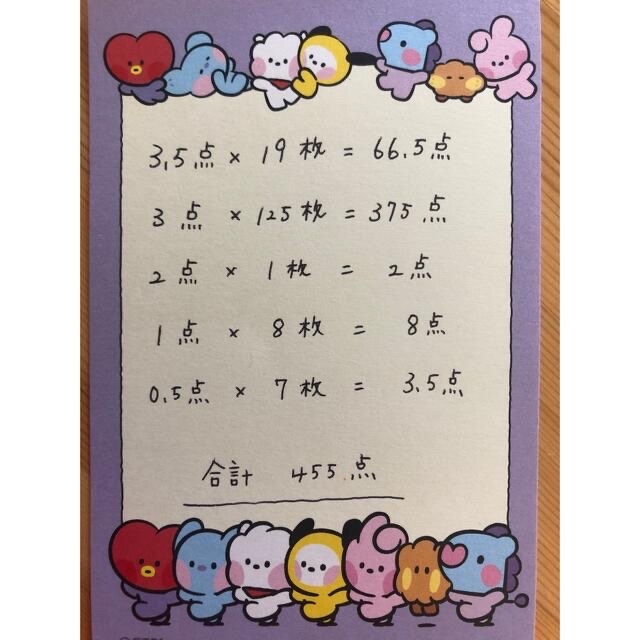 3.5点 × 19枚 = 66.5点
3点 × 125枚 = 375点
2点 × 1枚 = 2点
1点 × 8枚 = 8点
0.5点 × 7枚 = 3.5点
合計 455点